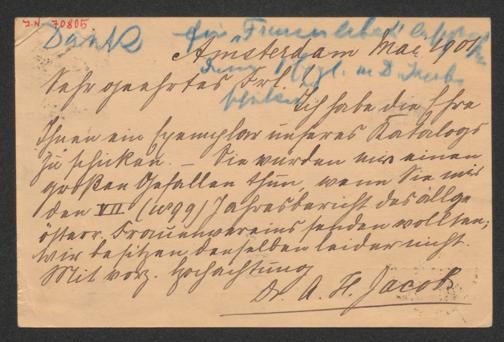 J.N. 70805
Dank
für Frauenleben
Amsterdam Mai 1901
Sehr geehrtes Frl.
Ich habe die Ehre
Ihnen ein Exemplar unseres Katalogs
zu schicken. – Sie würden mir einen
großen Gefallen thun, wenn Sie mir
den VII (1899) Jahresbericht des allge
österr. Frauenvereins senden wollten;
wir besitzen denselben leider nicht.
Mit vorz. Hochachtung
Dr. A. H. Jacob